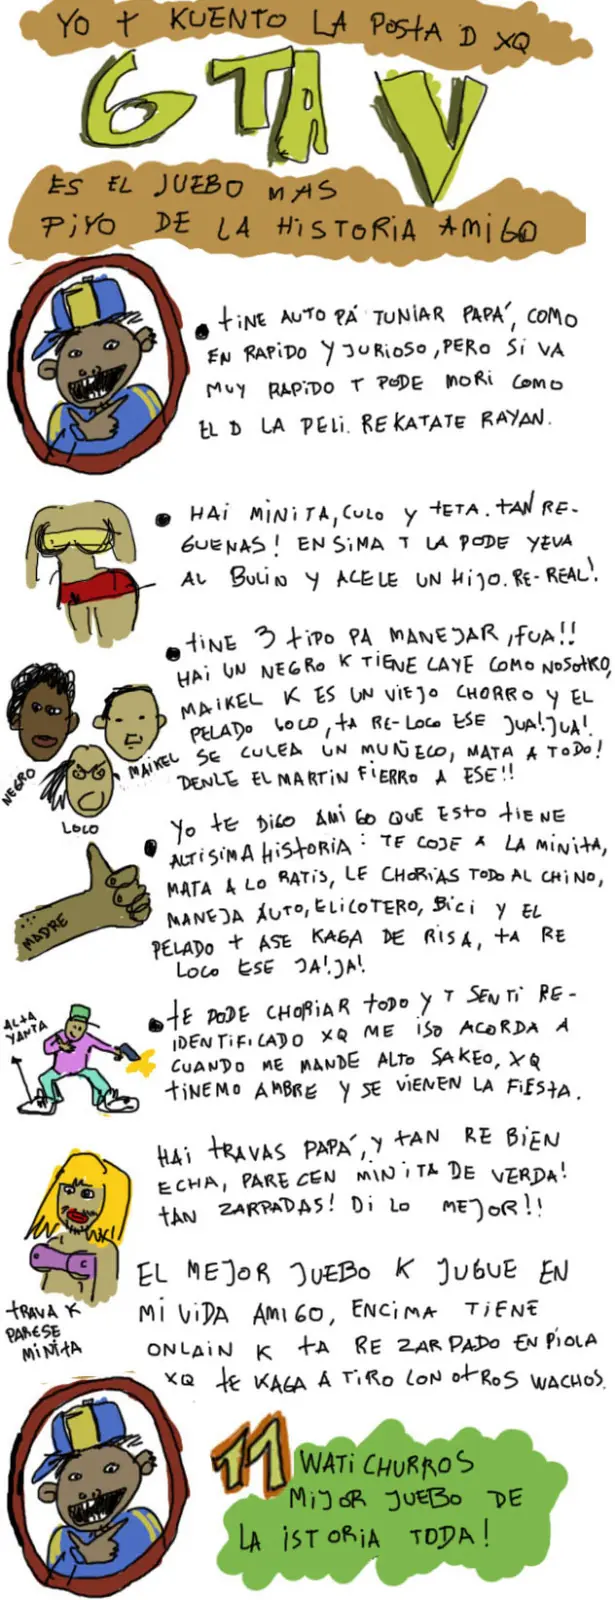 YO T KUENTO LA POSTA D XQ
GTA V
ES EL JUEBO MAS
PIYO DE LA HISTORIA AMIGO
• TINE AUTO PÁ TUNIAR PAPÁ, COMO
EN RAPIDO Y JURIOSO, PERO SI VA
MUY RAPIDO T PODE MORI COMO
EL D LA PELI. REKATATE RAYAN.
• HAI MINITA, CULO Y TETA. TAN RE-
GUENAS! ENSIMA T LA PODE YEVA
AL BULIN Y ACELE UN HIJO. RE-REAL!
• TINE 3 TIPO PA MANEJAR, ¡FUA!!
HAI UN NEGRO K TIENE CAYE COMO NOSOTRO,
MAIKEL K ES UN VIEJO CHORRO Y EL
PELADO LOCO, TA RE-LOCO ESE JUA! JUA!
SE CULEA UN MUÑECO, MATA A TODO!
DENLE EL MARTIN FIERRO A ESE!!
NEGRO
MAIKEL
LOCO
• YO TE DIGO AMIGO QUE ESTO TIENE
ALTISIMA HISTORIA: TE COJE A LA MINITA,
MATA A LO RATIS, LE CHORIAS TODO AL CHINO,
MANEJA AUTO, ELICOTERO, BICI Y EL
PELADO T ASE KAGA DE RISA, TA RE
LOCO ESE JA! JA!
MADRE
• TE PODE CHORIAR TODO Y T SENTI RE-
IDENTIFICADO XQ ME ISO ACORDA A
CUANDO ME MANDE ALTO SAKEO, XQ
TINEMO AMBRE Y SE VIENEN LA FIESTA.
ALTA
YANTA
HAI TRAVAS PAPÁ, Y TAN RE BIEN
ECHA, PARECEN MINITA DE VERDA!
TAN ZARPADAS! DI LO MEJOR!!
TRAVA K
PARESE
MINITA
EL MEJOR JUEBO K JUGUE EN
MI VIDA AMIGO, ENCIMA TIENE
ONLAIN K TA RE ZARPADO EN PIOLA
XQ TE KAGA A TIRO CON OTROS WACHOS.
11 WATICHURROS
MIJOR JUEBO DE
LA ISTORIA TODA!